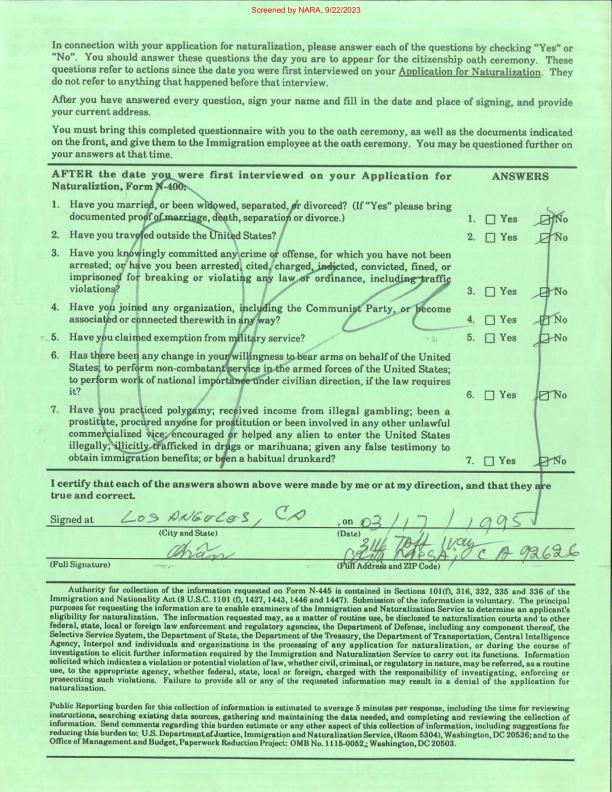 Screened by NARA, 9/22/2023
In connection with your application for naturalization, please answer each of the questions by checking "Yes" or
"No". You should answer these questions the day you are to appear for the citizenship oath ceremony. These
questions refer to actions since the date you were first interviewed on your Application for Naturalization. They
do not refer to anything that happened before that interview.
After you have answered every question, sign your name and fill in the date and place of signing, and provide
your current address.
You must bring this completed questionnaire with you to the oath ceremony, as well as the documents indicated
on the front, and give them to the Immigration employee at the oath ceremony. You may be questioned further on
your answers at that time.
AFTER the date you were first interviewed on your Application for
Naturaliztion, Form N-400:
ANSWERS
1. Have you married, or been widowed, separated, or divorced? (If "Yes" please bring
documented proof of marriage, death, separation or divorce.)
1. Yes No
2. Have you traveled outside the United States?
2. Yes No
3. Have you knowingly committed any crime or offense, for which you have not been
arrested; or have you been arrested, cited, charged, indicted, convicted, fined, or
imprisoned for breaking or violating any law or ordinance, including traffic
violations?
3. Yes No
4. Have you joined any organization, including the Communist Party, or become
associated or connected therewith in any way?
4. Yes No
5. Have you claimed exemption from military service?
5. Yes No
6. Has there been any change in your willingness to bear arms on behalf of the United
States; to perform non-combatant service in the armed forces of the United States;
to perform work of national importance under civilian direction, if the law requires
it?
6. Yes No
7. Have you practiced polygamy; received income from illegal gambling; been a
prostitute, procured anyone for prostitution or been involved in any other unlawful
commercialized vice; encouraged or helped any alien to enter the United States
illegally; illicitly trafficked in drugs or marihuana; given any false testimony to
obtain immigration benefits; or been a habitual drunkard?
7. Yes No
I certify that each of the answers shown above were made by me or at my direction, and that they are
true and correct.
Signed at LOS ANGELOS, CA , on 03/17/1995
(City and State) (Date)
CA 92626
(Full Signature) (Full Address and ZIP Code)
Authority for collection of the information requested on Form N-445 is contained in Sections 101(f), 316, 332, 335 and 336 of the
Immigration and Nationality Act (8 U.S.C. 1101 (f), 1427, 1443, 1446 and 1447). Submission of the information is voluntary. The principal
purposes for requesting the information are to enable examiners of the Immigration and Naturalization Service to determine an applicant's
eligibility for naturalization. The information requested may, as a matter of routine use, be disclosed to naturalization courts and to other
federal, state, local or foreign law enforcement and regulatory agencies, the Department of Defense, including any component thereof, the
Selective Service System, the Department of State, the Department of the Treasury, the Department of Transportation, Central Intelligence
Agency, Interpol and individuals and organizations in the processing of any application for naturalization, or during the course of
investigation to elicit further information required by the Immigration and Naturalization Service to carry out its functions. Information
solicited which indicates a violation or potential violation of law, whether civil, criminal, or regulatory in nature, may be referred, as a routine
use, to the appropriate agency, whether federal, state, local or foreign, charged with the responsibility of investigating, enforcing or
prosecuting such violations. Failure to provide all or any of the requested information may result in a denial of the application for
naturalization.
Public Reporting burden for this collection of information is estimated to average 5 minutes per response, including the time for reviewing
instructions, searching existing data sources, gathering and maintaining the data needed, and completing and reviewing the collection of
information. Send comments regarding this burden estimate or any other aspect of this collection of information, including suggestions for
reducing this burden to; U.S. Department of Justice, Immigration and Naturalization Service, (Room 5304), Washington, DC 20536; and to the
Office of Management and Budget, Paperwork Reduction Project: OMB No. 1115-0052,; Washington, DC 20503.